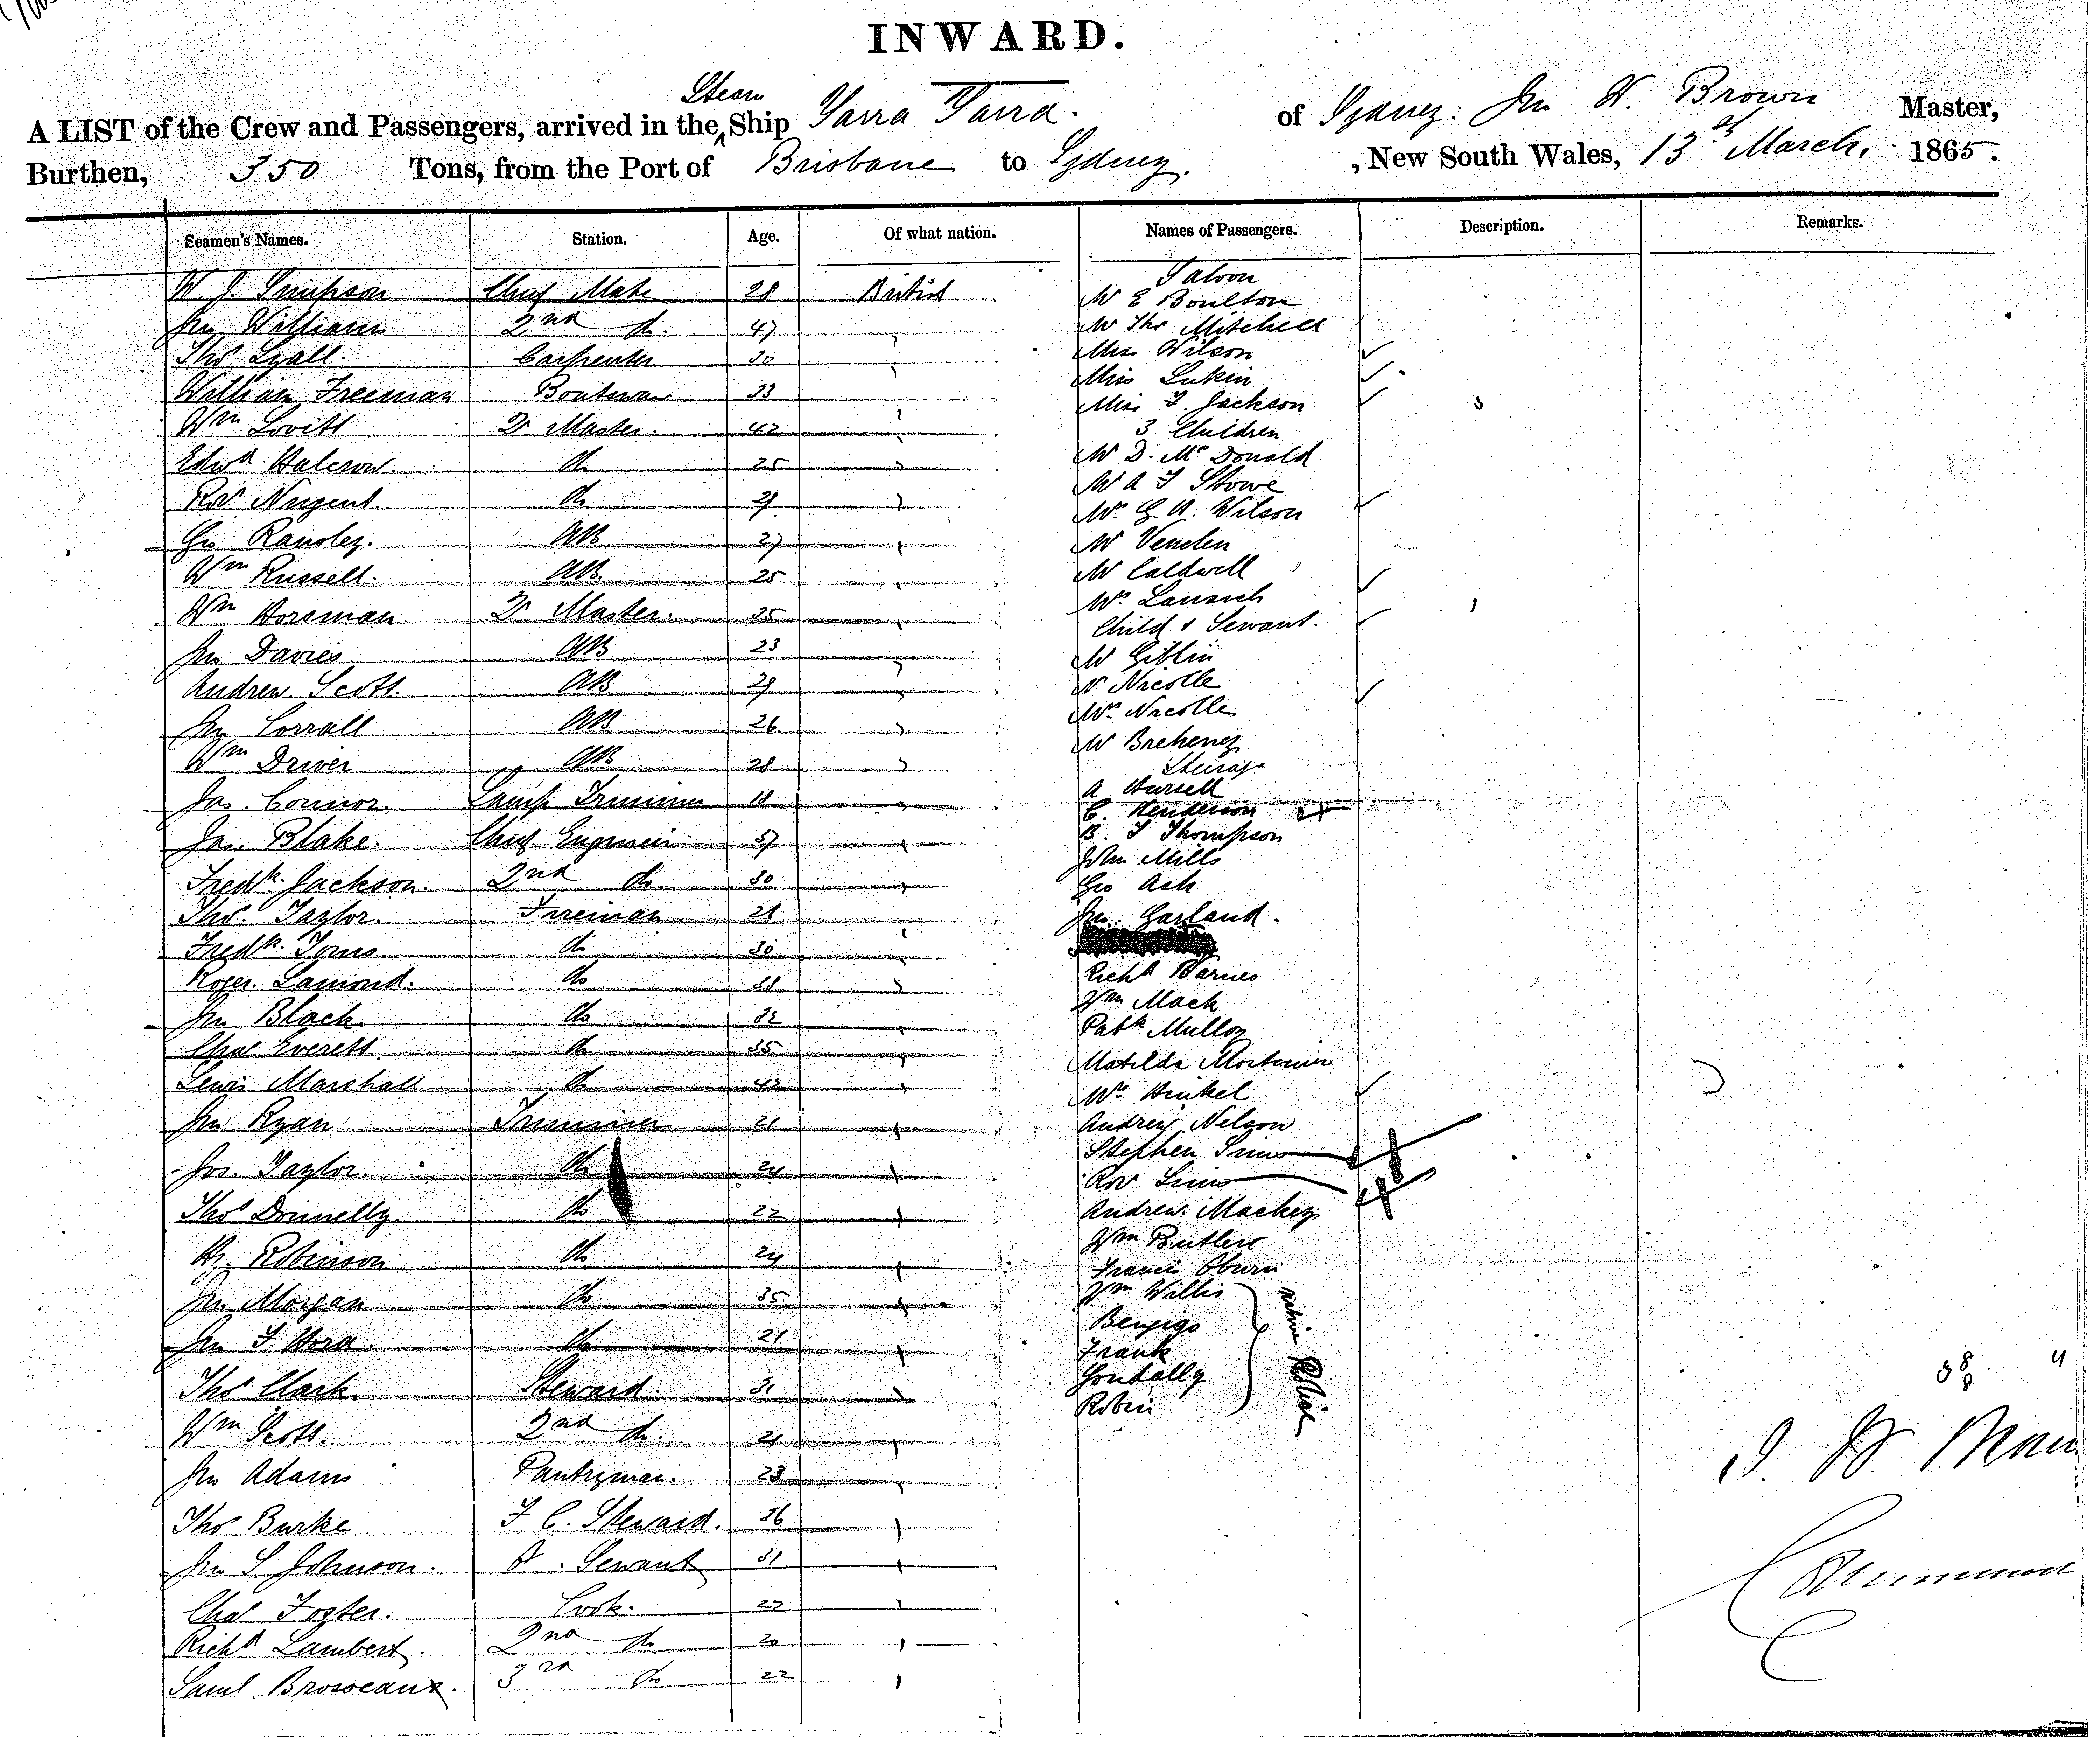 INWARD.
A LIST of the Crew and Passengers, arrived in the Steam Ship Yarra Yarra. of Sydney. Jn H. Brown Master,
Burthen, 350 Tons, from the Port of Brisbane to Sydney. , New South Wales, 13th March, 1865.
Seamen's Names. Station. Age. Of what nation. Names of Passengers. Description. Remarks.
Saloon
W J Simpson Chief Mate 28 British Mr E Boulton
Jn Williams 2nd do. 47 " Mr Thos Mitchell
Thos Lyall. Carpenter 30 " Miss Wilson
William Freeman Boatswan 33 Miss Lukin
Miss F. Jackson
Wm Lovitt Qr Master. 42 " 3 Children
Edwd Halcrow. do 25 " Mr D. McDonald
Mr A F Stowe
Robt Nugent. do 29 " Mrs G A. Wilson
Geo Ransley. AB 27 " Mr Venden
Wm Russell. AB. 25 " Mr Caldwell
Wm Horsman Qr Master. 35 " Mrs
Child & Servant.
Jn Davies AB 23 " Mr Giblin
Andrew Scott. AB 29 " Mr Nicolle
Jn Corrall AB 26 " Mrs Nicolle
Mr Breheney
Wm Driver AB 28 " Steerage
Jas. Connor. Lamp Trimmer 18 " A Hursell
C. Henderson
Jas. Blake. Chief Engineer 37 " B. F Thompson
John Mills
Fredk. Jackson. 2nd do 30 " Geo Ash
Thos. Taylor. Fireman 28 Jn. Garland.
Fredk. Jones do 30 "
Roger Lamond. do 38 " Richd Barnes
Jn Black. do 32 " Wm Mack
Chas Everett do 35 " Patk Mulloy
Lewis Marshall do 42 " Matilda Mortimer
Mrs Hinkel
Jn Ryan Trimmer 21 " Andrew Nelson
Stephen Sims
Jos. Taylor. do 24 " Robt Sims
Thos Donnelly. do 22 " Andrew Mackey
Wm Butler
Hy. Robinson do 24 " Francis
Jn Morgan do 35 " Wm Willis
Jn F Hord. do 21 " Bengigo
Frank
Thos Clark. Steward 31 " Gondally
Robin
Native Police
Wm Scott. 2nd do. 21 "
Jn Adams Pantryman. 23 "
Thos Burke F C. Steward. 36 "
Jn S Johnson. Servant 31 "
Chas Foster. Cook. 22 "
Richd Lambert. 2nd do 20 "
Saml 3rd do 22 "